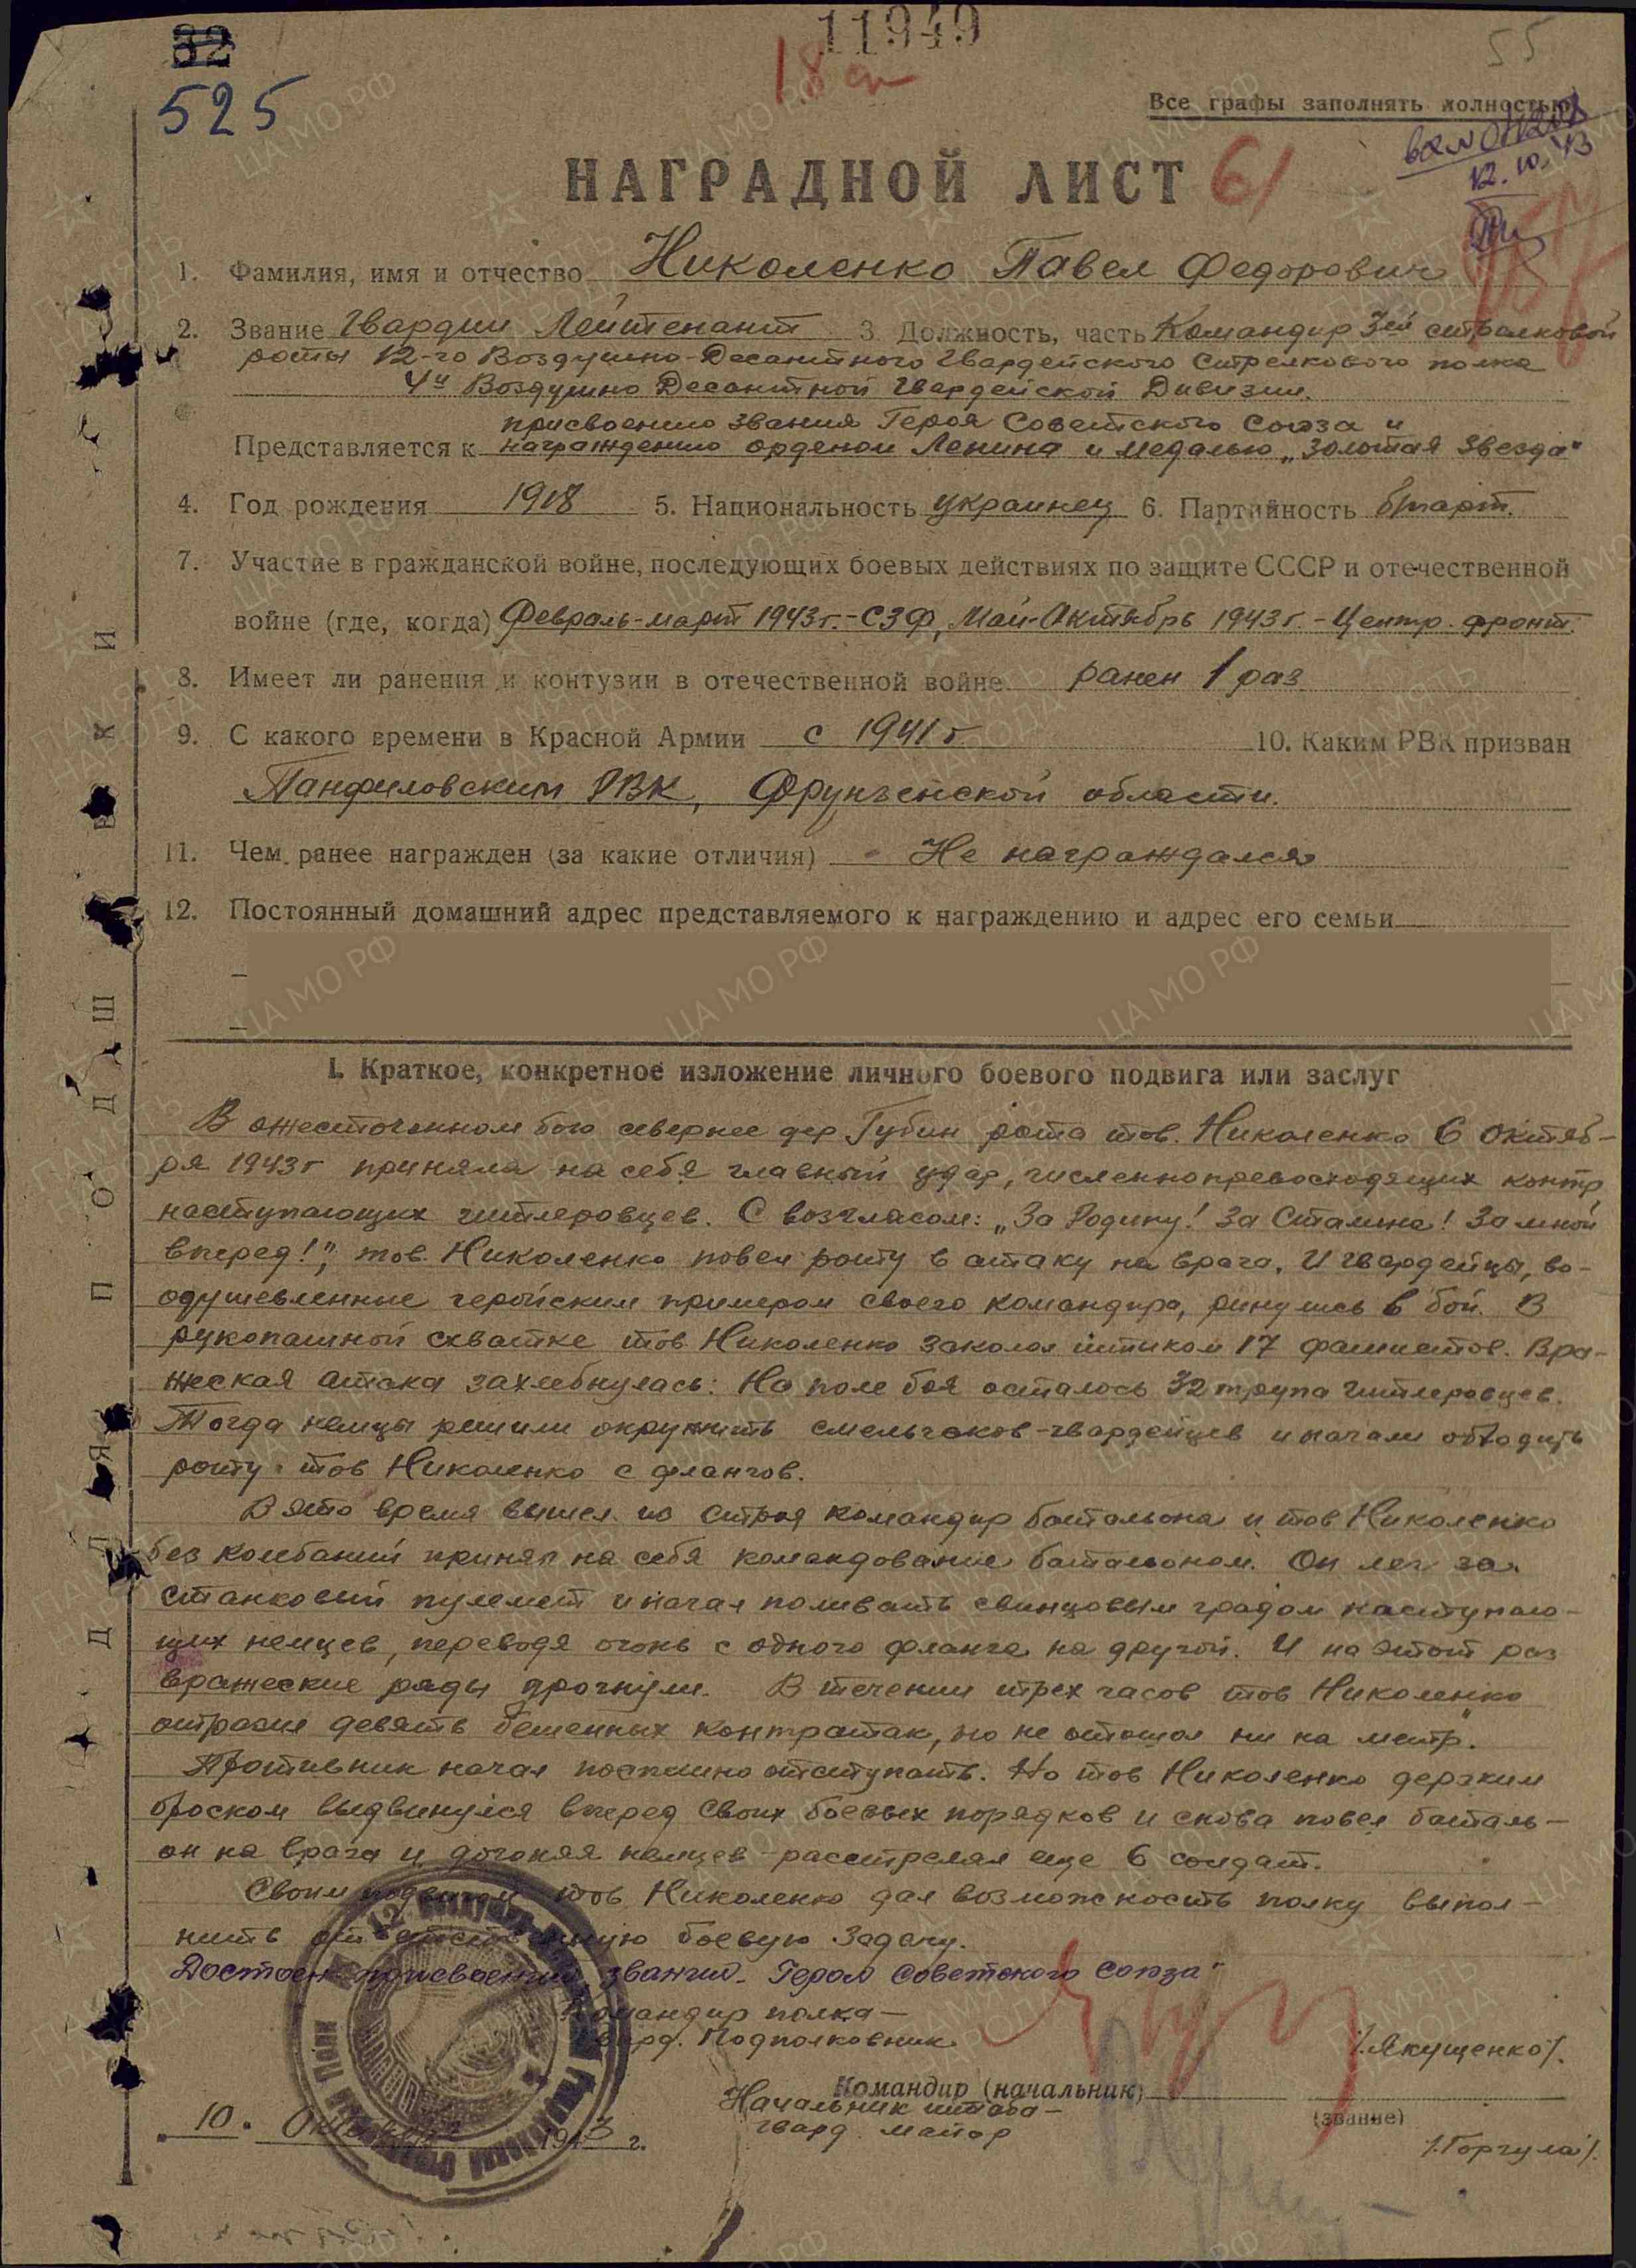 32
11949
55
525
18
Все графы заполнять полностью
12.10.43
НАГРАДНОЙ ЛИСТ 61
1. Фамилия, имя и отчество Николенко Павел Федорович
2. Звание Гвардии Лейтенант 3. Должность, часть Командир 3ей стрелковой
роты 12-го Воздушно-Десантного Гвардейского Стрелкового полка
4й Воздушно Десантной Гвардейской Дивизии.
присвоению звания Героя Советского Союза и
Представляется к награждению орденом Ленина и медалью „Золотая Звезда"
4. Год рождения 1918 5. Национальность украинец 6. Партийность б/парт.
7. Участие в гражданской войне, последующих боевых действиях по защите СССР и отечественной
войне (где, когда) Февраль-март 1943г.-СЗФ, Май-Октябрь 1943г.-Центр. фронт.
8. Имеет ли ранения и контузии в отечественной войне ранен 1 раз
9. С какого времени в Красной Армии с 1941г 10. Каким РВК призван
Панфиловским РВК, Фрунзенской области.
11. Чем ранее награжден (за какие отличия) Не награждался
12. Постоянный домашний адрес представляемого к награждению и адрес его семьи
ДЛЯ ПОДШИВКИ
I. Краткое, конкретное изложение личного боевого подвига или заслуг
В ожесточенном бою севернее дер Губин рота тов. Николенко 6 октяб-
ря 1943г приняла на себя главный удар, численнопревосходящих контр
наступающих гитлеровцев. С возгласом: „За Родину! За Сталина! За мной
вперед!", тов. Николенко повел роту в атаку на врага. И гвардейцы, во-
одушевленные геройским примером своего командира, ринулись в бой. В
рукопашной схватке тов. Николенко заколол штыком 17 фашистов. Вра-
жеская атака захлебнулась: На поле боя осталось 32 трупа гитлеровцев.
Тогда немцы решили окружить смельчаков-гвардейцев и начали обходить
роту тов Николенко с флангов.
В это время вышел из строя командир батальона и тов Николенко
без колебаний принял на себя командование батальоном. Он лег за
станковый пулемет и начал поливать свинцовым градом наступаю-
щих немцев, переводя огонь с одного фланга на другой. И на этот раз
вражеские ряды дрогнули. В течении трех часов тов Николенко
отразил девять бешенных контратак, но не отошол ни на метр.
Противник начал поспешно отступать. Но тов Николенко дерзким
броском выдвинулся вперед своих боевых порядков и снова повел баталь-
он на врага и догоняя немцев расстрелял еще 6 солдат.
Своим подвигом тов Николенко дал возможность полку выпол-
нить ответственную боевую задачу.
Достоен присвоения звания Героя Советского Союза
Командир полка-
гвард. Подполковник
/Якущенко/.
Командир (начальник)
Начальник штаба-
(звание)
гвард. майор
/Горгула/.
10. Октября 1943 г.